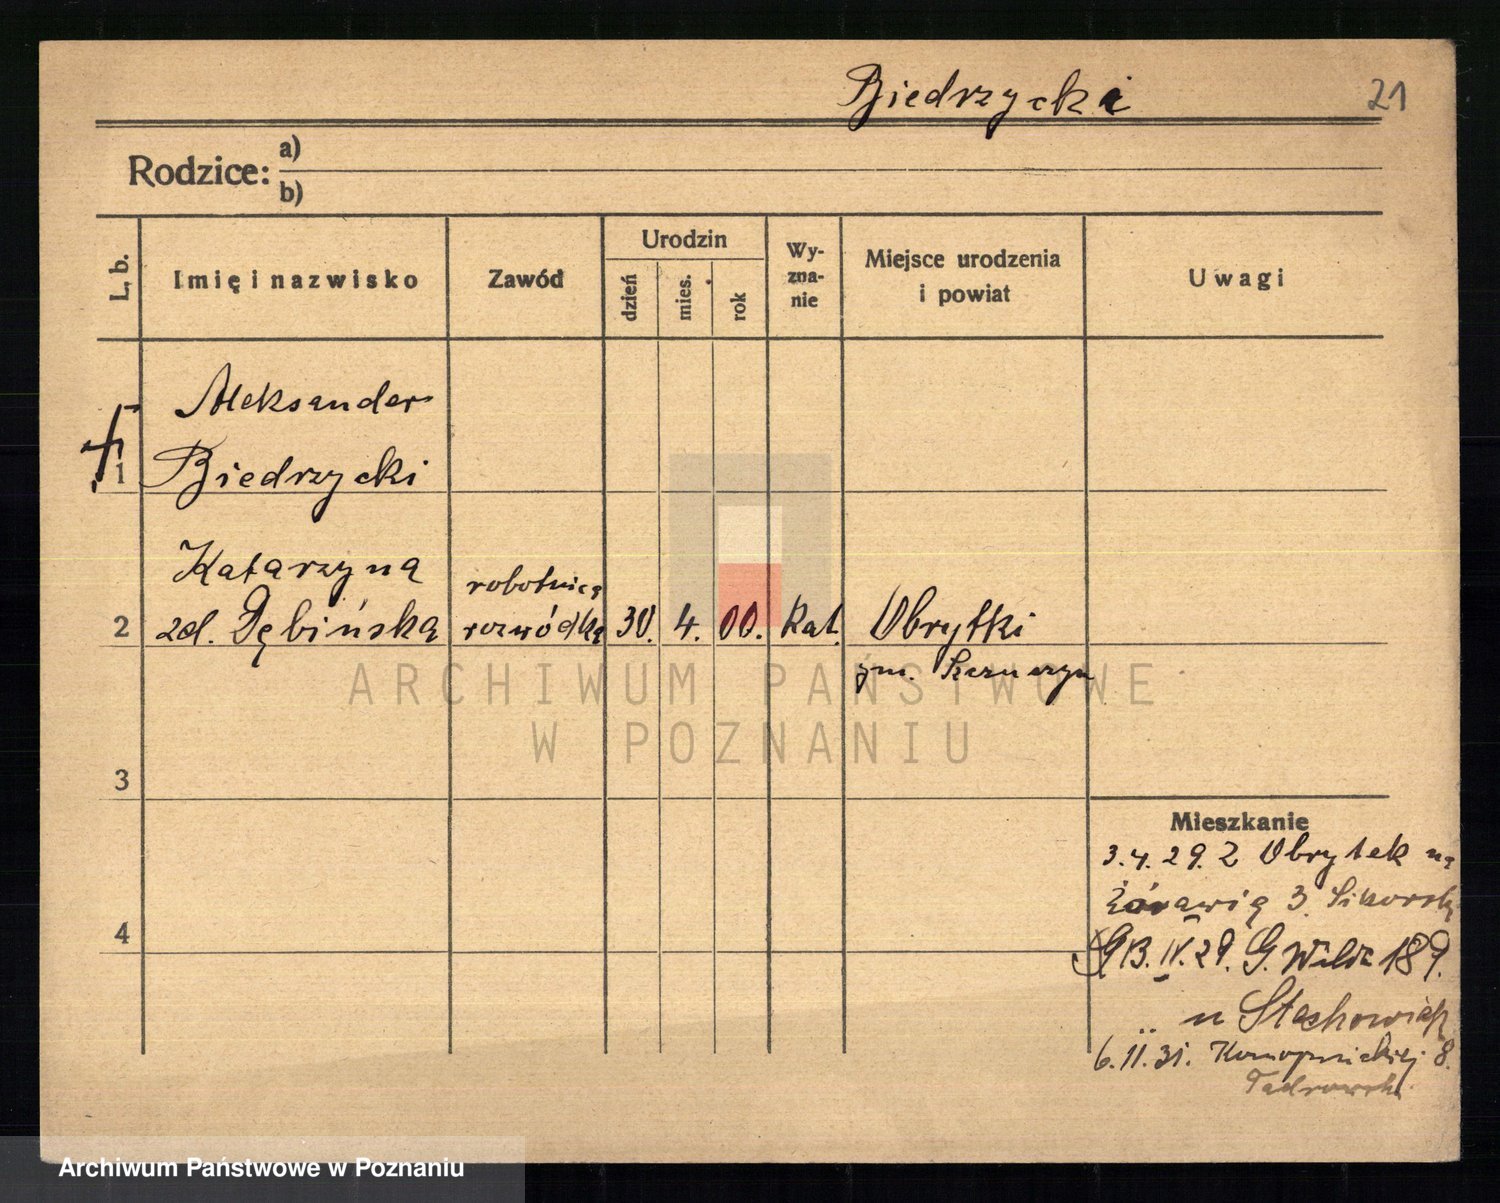 Biedrzycki
21
Rodzice: a)
b)
L. b.
Imię i nazwisko
Zawód
Urodzin
dzień
mies.
rok
Wy-
zna-
nie
Miejsce urodzenia
i powiat
Uwagi
Aleksander
1 Biedrzycki
Katarzyna
robotnica
2 zd. Dębińska rozwódka 30. 4. 00. Kat. Obrytki
gm.
ARCHIWUM PAŃSTWOWE
W POZNANIU
3
Mieszkanie
3.4.29. Z Obrytek na
Żórawią 3.
4
13.IV.29. G. Wilda 189.
u Stachowiak
6.II.31. Konopnickiej 8.
Archiwum Państwowe w Poznaniu